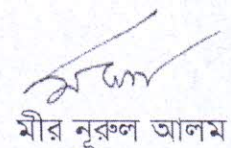 মীর নূরুল আলম